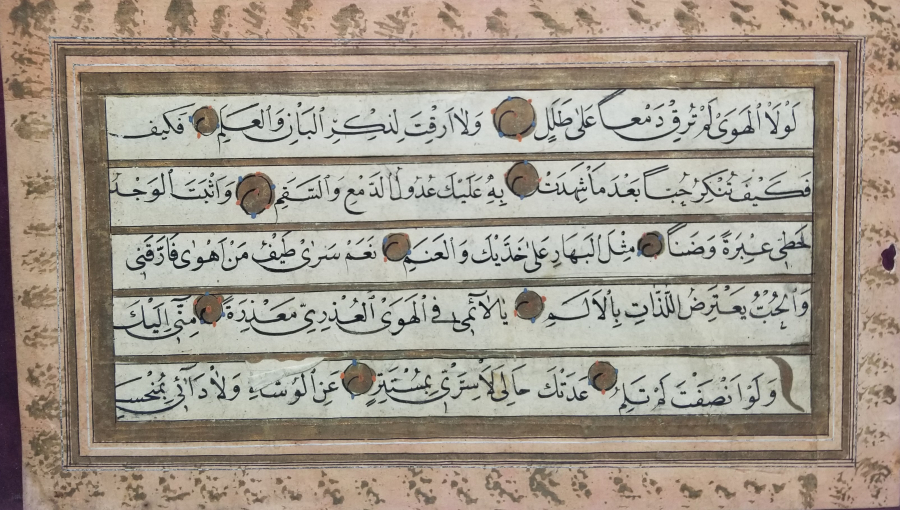 لَوْلَا الْهَوَىٰ لَمْ تُرِقْ دَمْعًا عَلىٰ طَلَلٍ وَلَا اَرِقْتَ لِذِكْرِ الْبَانِ وَالْعَلَمِ فَكَيْفَ
فَكَيْفَ تُنْكِرُ حُبًّا بَعْدَ مَا شَهِدَتْ بِهِ عَلَيْكَ عُدُولُ الدَّمْعِ وَالسَّقَمِ وَاَثْبَتَ الْوَجْدُ
خَطَّيْ عَبْرَةٍ وَضَنًا مِثْلَ الْبَهَارِ عَلىٰ خَدَّيْكَ وَالْعَنَمِ نَعَمْ سَرىٰ طَيْفُ مَنْ اَهْوىٰ فَارَّقَنِي
وَالْحُبُّ يَعْتَرِضُ اللَّذَّاتِ بِالْاَلَمِ يَا لَائِمِي فِي الْهَوَى الْعُذْرِيِّ مَعْذِرَةً مِنِّي اِلَيْكَ
وَلَوْ اَنْصَفْتَ لَمْ تَلُمِ عَدَتْكَ حَالِيَ لَا سِرِّي بِمُسْتَتِرٍ عَنِ الْوُشَاةِ وَلَا دَائِي بِمُنْحَسِـ